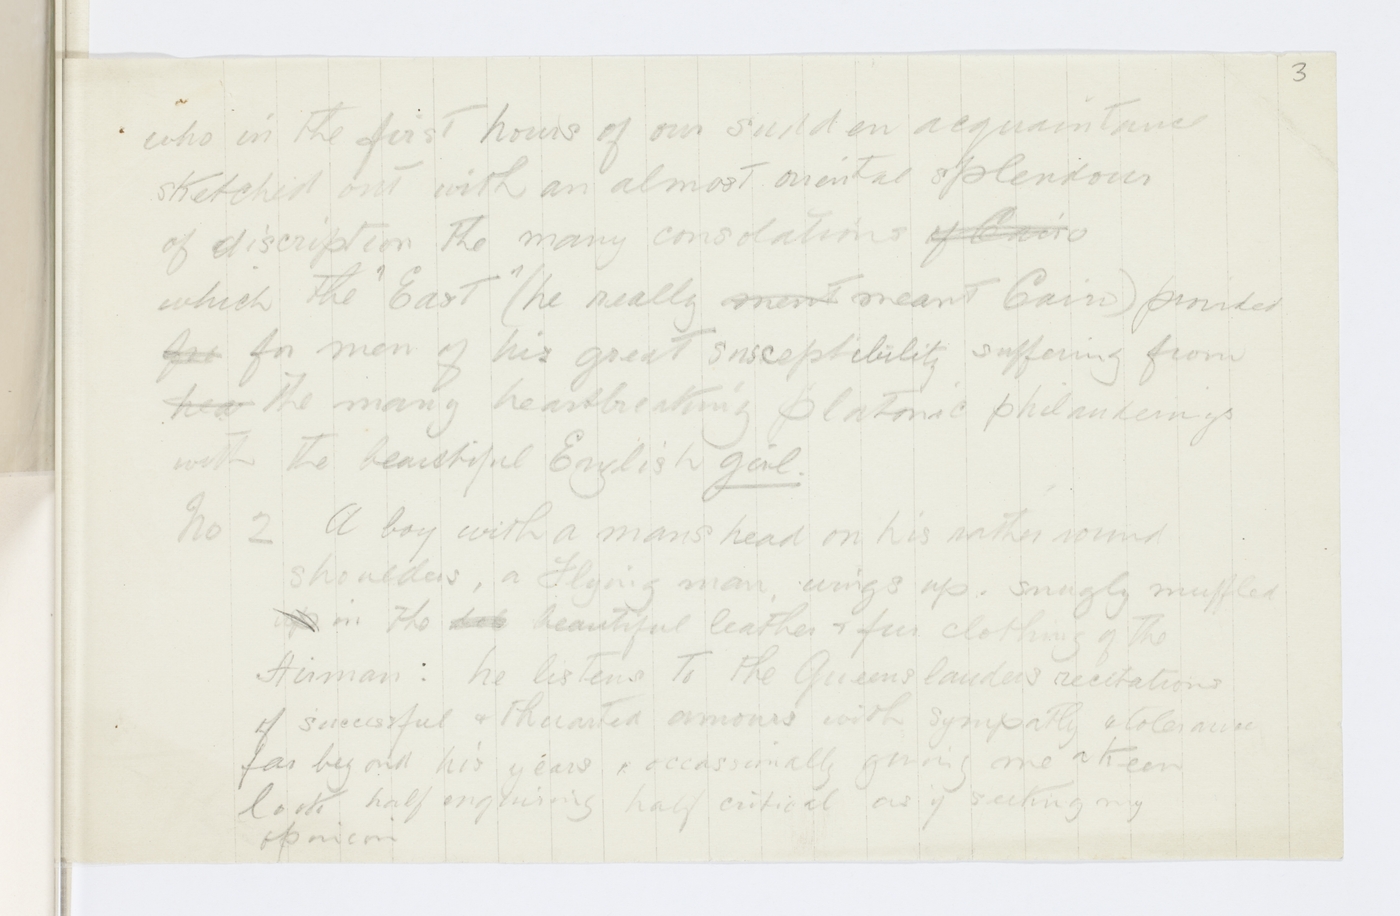 3
who in the first hours of our sudden acquaintance
sketched out with an almost oriental splendour
of discription the many consolations of Cairo
which the "East" (he really ment meant Cairo) provided
for for men of his great susceptibility suffering from
hea the many heartbreaking platonic philanderings
with the beautiful English girl.
No 2 A boy with a mans head on his rather round
shoulders, a Flying man, wings up. snugly muffled
up in the beautiful leather & fur clothing of the
Airman: he listens to the Queenslanders recitations
of successful & thwarted amours with sympathy & tolerance
far beyond his years & occassionally giving me a keen
look half enquiring half critical as if seeking my
opinion